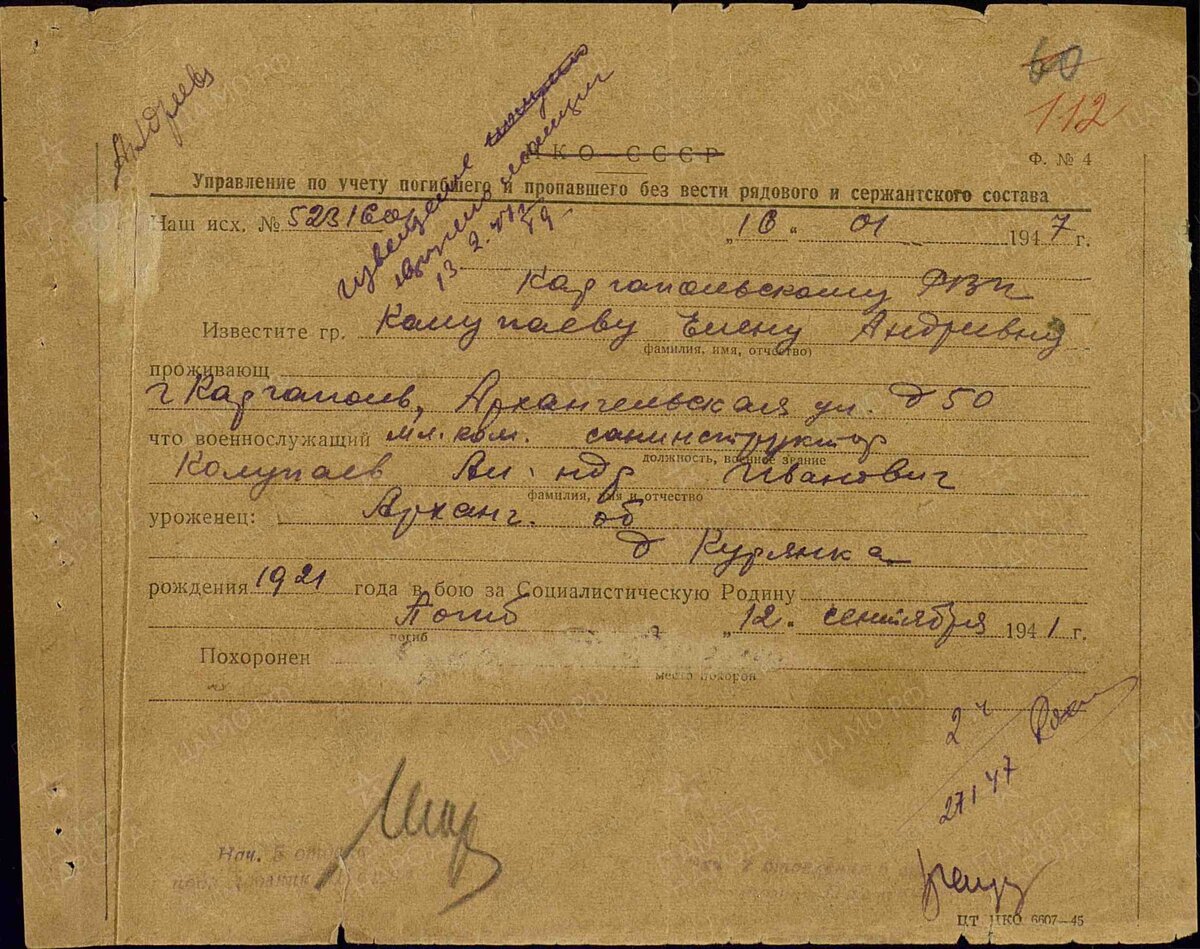 60
112
НКО СССР
Ф. № 4
Управление по учету погибшего и пропавшего без вести рядового и сержантского состава
Наш исх. № 52316
„16“ 01 1947 г.
извещение
13.2.
Каргопольскому РВК
Известите гр. Колупаеву Елену Андревну
фамилия, имя, отчество)
проживающ
г Каргополь, Архангельская ул. д 50
что военнослужащий мл. ком. санинструктор
должность, военное звание
Колупаев Иванович
фамилия, имя и отчество
уроженец: Арханг. об
д Курянка
рождения 1921 года в бою за Социалистическую Родину
Погиб „12. сентября 1941 г.
погиб
Похоронен
место похорон
2ч
27 1 47
Нач. 5
ЦТ НКО 6607—45